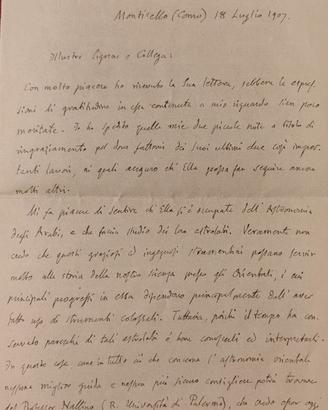 Monticello (Como) 18 Luglio 1907.
Illustre Signore e Collega:
Con molto piacere ho ricevuto la Sua lettera, sebbene le espres-
sioni di gratitudine in essa contenute a mio riguardo sien poco
meritate. Io ho spedito quelle mie due piccole note a titolo di
ringraziamento pel dono fattomi dei Suoi ultimi due così impor-
tanti lavori, ai quali auguro ch'Ella possa far seguire ancora
molti altri.
Mi fa piacere di sentire ch'Ella si è occupata dell'Astronomia
degli Arabi, e che faccia studio dei loro astrolabi. Veramente non
credo che questi graziosi ed ingegnosi strumentini possano servir
molto alla storia della nostra scienza presso gli Orientali, i cui
principali progressi in essa dipendono principalmente dall'aver
fatto uso di strumenti colossali. Tuttavia, poichè il tempo ha con-
servato parecchi di tali astrolabi è bene conoscerli ed interpretarli.
In queste cose, come in tutto ciò che concerne l'astronomia orientale
nessuna miglior guida e nessun più sicuro consigliere potrà trovare
del Professor Nallino (R. Università di Palermo), che credo oggi